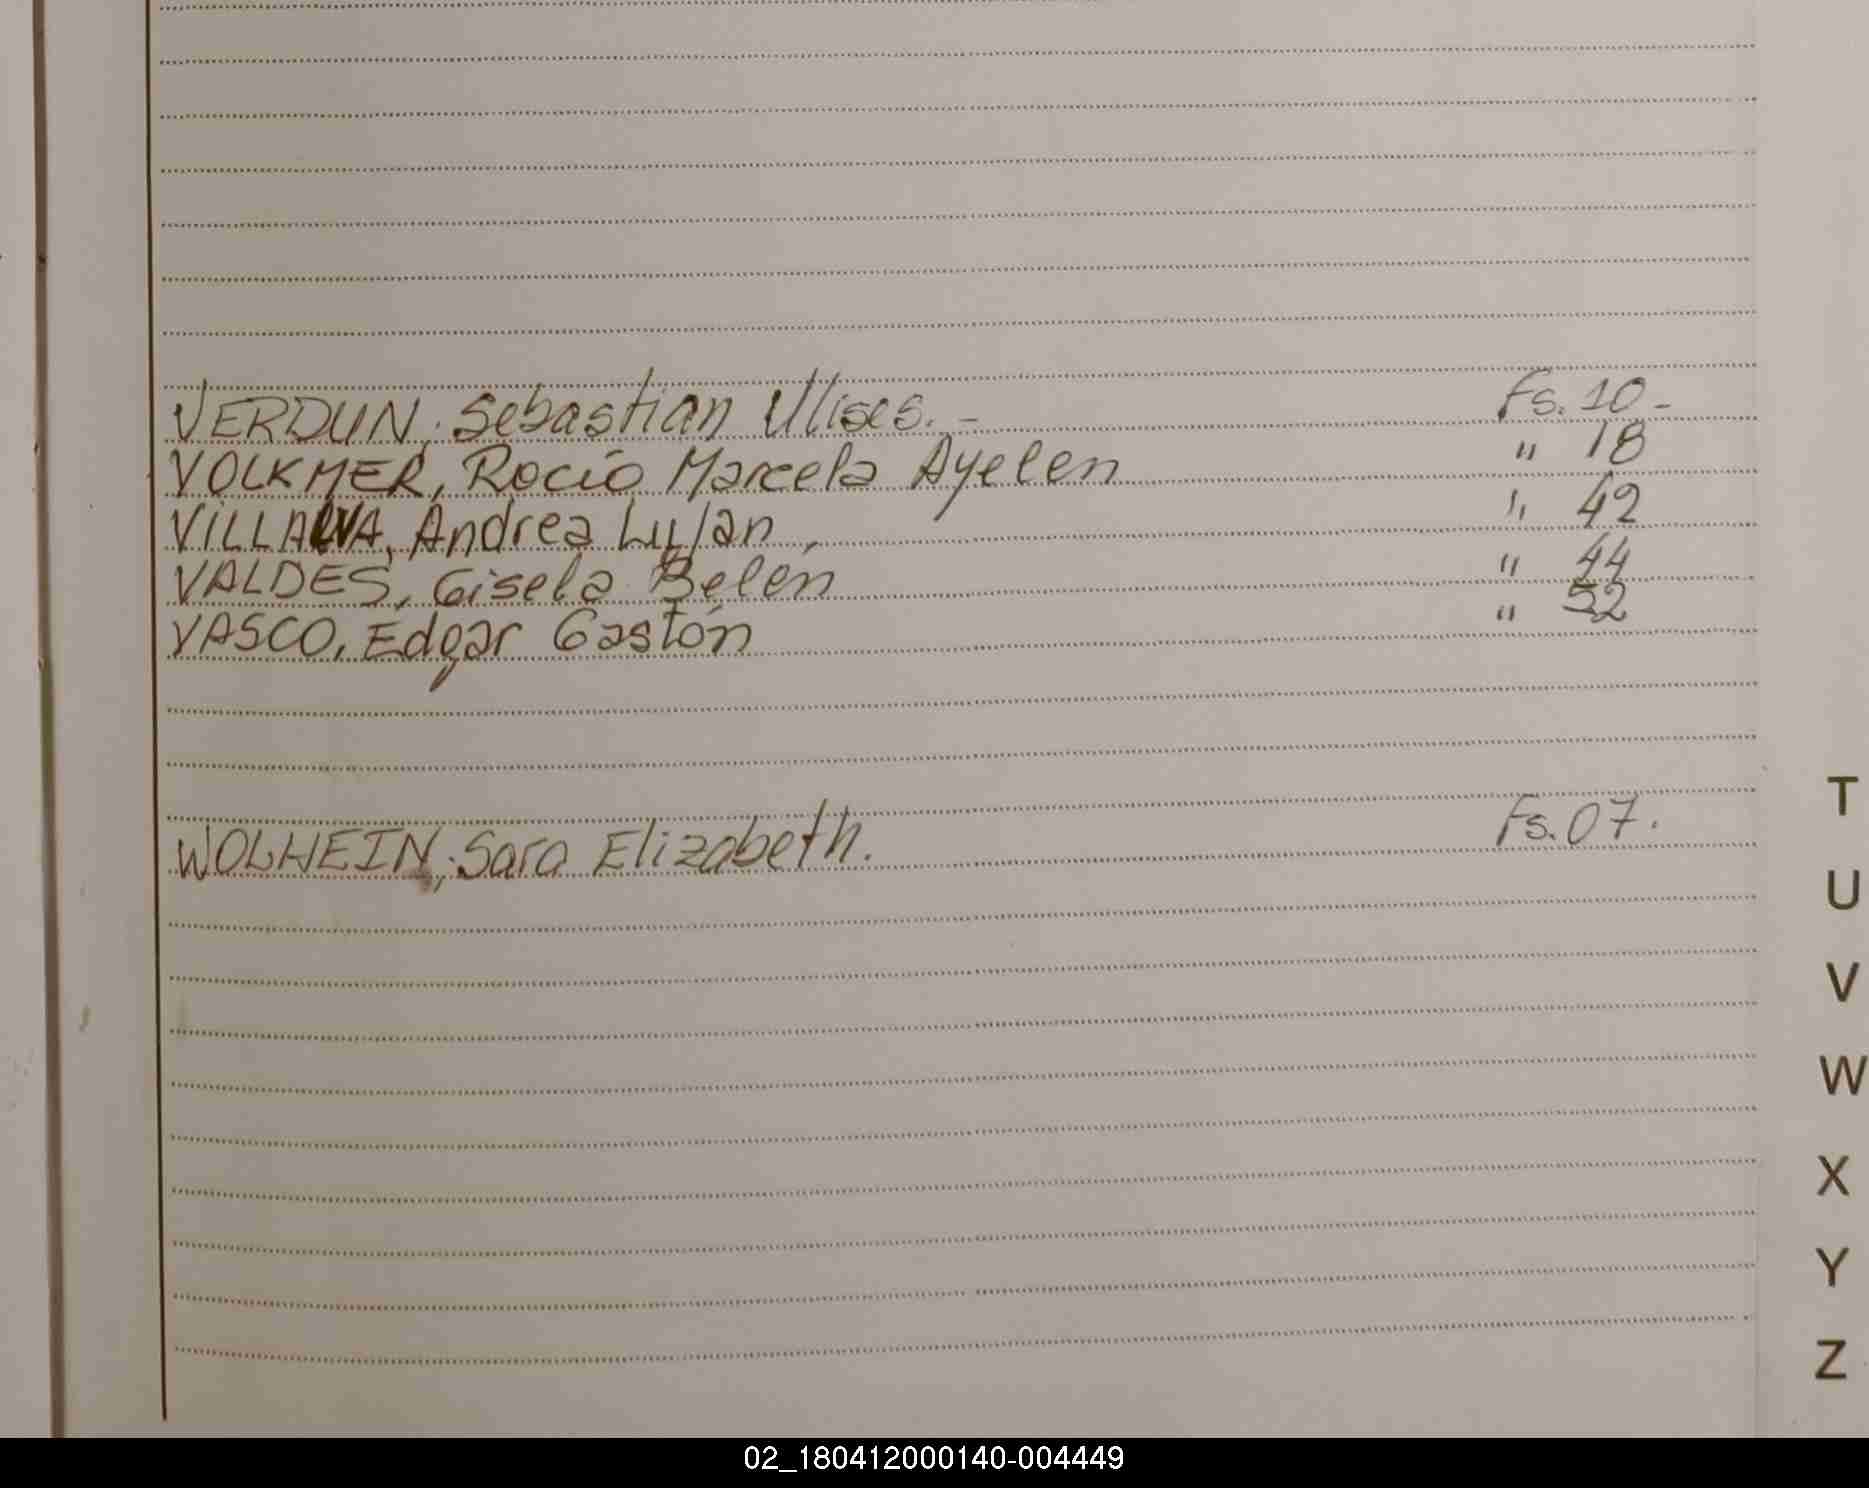 VERDUN, Sebastian Ulises.- Fs. 10-
VOLKMER, Rocío Marcela Ayelen " 18
VILLALVA, Andrea Luján, " 42
VALDES, Gisela Belén " 44
VASCO, Edgar Gastón " 52
WOLHEIN, Sara Elizabeth. Fs. 07.
T
U
V
W
X
Y
Z
02_180412000140-004449